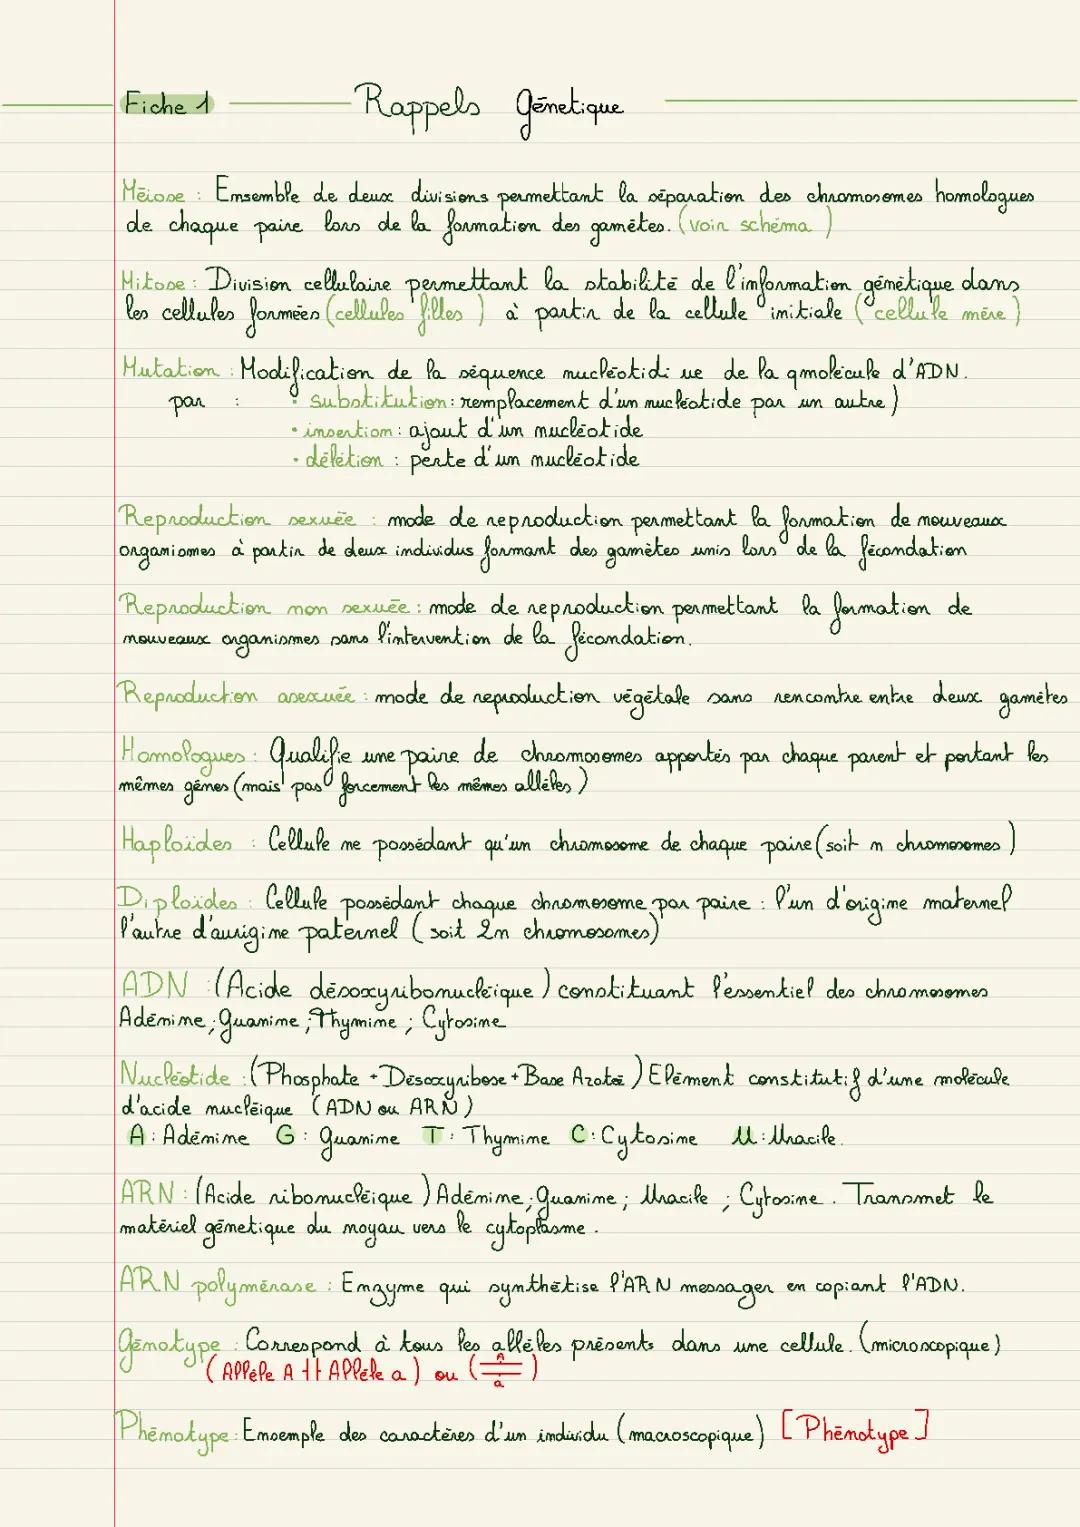 Fiche 1 Rappels génetique
Méiose : Ensemble de deux divisions permettant la séparation des chromosomes homologues
de chaque paire lors de la formation des gamètes. (voir schéma)
Mitose : Division cellulaire permettant la stabilité de l'information génétique dans
les cellules formées (cellules filles) à partir de la cellule initiale (cellule mère)
Mutation : Modification de la séquence nucléotidi ue de la qmolécule d'ADN.
par : • substitution : remplacement d'un nucléotide par un autre)
• insertion : ajout d'un nucléotide
• délétion : perte d'un nucléotide
Reproduction sexuée : mode de reproduction permettant la formation de nouveaux
organismes à partir de deux individus formant des gamètes unis lors de la fécondation
Reproduction non sexuée : mode de reproduction permettant la formation de
nouveaux organismes sans l'intervention de la fécondation.
Reproduction asexuée : mode de reproduction végétale sans rencontre entre deux gamètes
Homologues : Qualifie une paire de chromosomes apportés par chaque parent et portant les
mêmes gènes (mais pas forcement les mêmes allèles)
Haploïdes : Cellule ne possédant qu'un chromosome de chaque paire (soit n chromosomes)
Diploïdes : Cellule possédant chaque chromosome par paire : l'un d'origine maternel
l'autre d'aurigine paternel (soit 2n chromosomes)
ADN : (Acide désoxyribonucléique) constituant l'essentiel des chromosomes
Adénine ; Guanine ; Thymine ; Cytosine
Nucléotide : (Phosphate + Désoxyribose + Base Azotée) Elément constitutif d'une molécule
d'acide nucléique (ADN ou ARN)
A : Adénine G : Guanine T : Thymine C : Cytosine U : Uracile.
ARN : (Acide ribonucléique) Adénine ; Guanine ; Uracile ; Cytosine. Transmet le
matériel génetique du noyau vers le cytoplasme.
ARN polymérase : Enzyme qui synthétise l'ARN messager en copiant l'ADN.
Génotype : Correspond à tous les allèles présents dans une cellule. (microscopique)
(Allèle A ++ Allèle a) ou (A/a)
Phénotype : Ensemple des caractères d'un individu (macroscopique) [Phénotype]